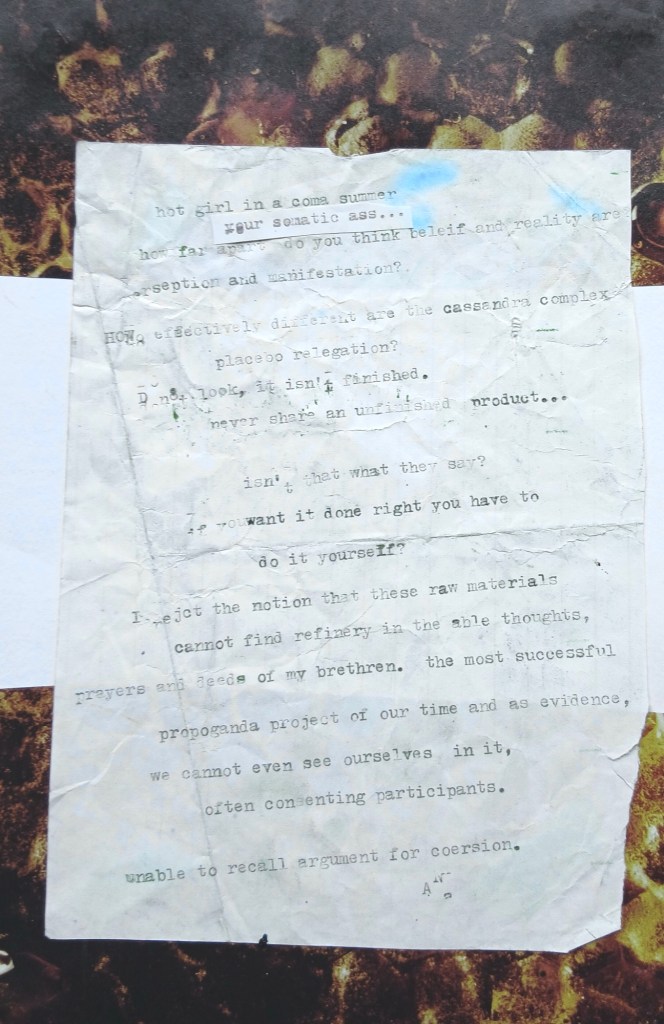 hot girl in a coma summer
your somatic ass...
how far apart do you think beleif and reality are
perseption and manifestation?
HOW effectively different are the cassandra complex
placebo relegation?
D not look, it isn't finished.
never share an unfinished product...
isn't that what they say?
If you want it done right you have to
do it yourself?
I reject the notion that these raw materials
cannot find refinery in the able thoughts,
prayers and deeds of my brethren. the most successful
propoganda project of our time and as evidence,
we cannot even see ourselves in it,
often consenting participants.
unable to recall argument for coersion.